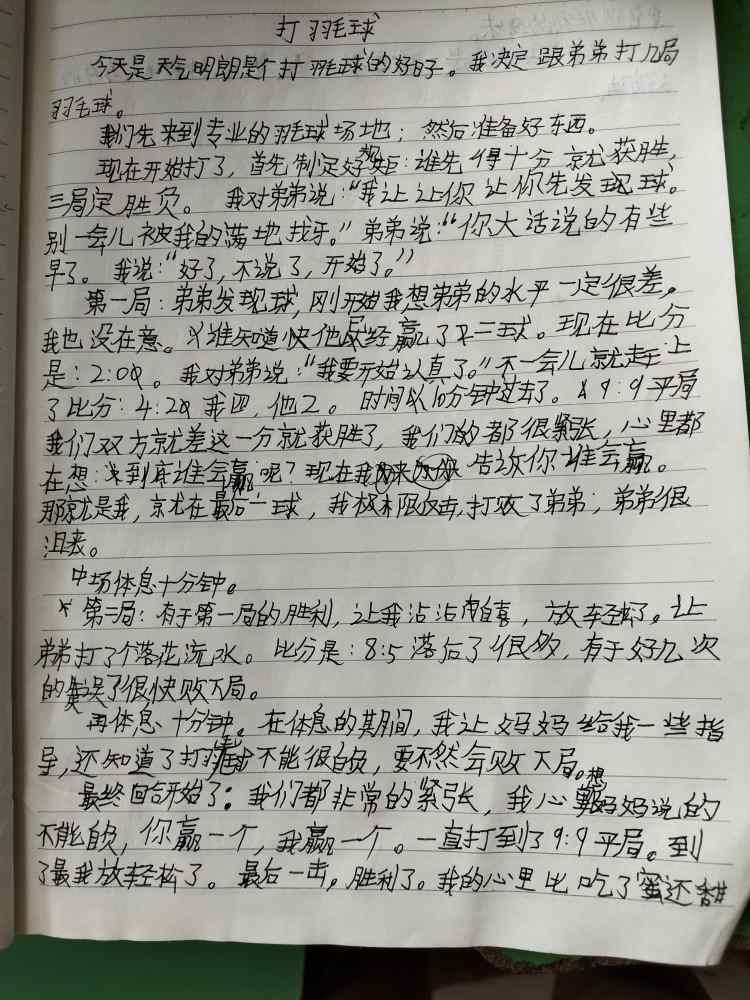 打羽毛球
今天是天气明朗是个打羽毛球的好日子。我决定跟弟弟打几局
羽毛球。
我们先来到专业的羽毛球场地；然后准备好东西。
现在开始打了，首先制定好规矩：谁先得十分就获胜，
三局定胜负。我对弟弟说：“我让让你让你先发现球。
别一会儿被我的满地找牙。”弟弟说：“你大话说的有些
早了。我说：“好了，不说了，开始了。”
第一局：弟弟发现球，刚开始我想弟弟的水平一定很差，
我也没在意。谁知道快他已经赢了三球。现在比分
是：2:0。我对弟弟说：“我要开始认真了。”不一会儿就赶上
了比分：4:2 我四，他2。时间以10分钟过去了。9:9平局
我们双方就差这一分就获胜了，我们的都很紧张，心里都
在想：到底谁会赢呢？现在我来告诉你谁会赢。
那就是我，就在最后一球，我极限反击，打败了弟弟；弟弟很
沮丧。
中场休息十分钟。
第二局：有于第一局的胜利，让我沾沾自喜，放轻松了。让
弟弟打了个落花流水。比分是：8:5落后了很多，有于好几次
的失误了很快败下局。
再休息十分钟。在休息的其期间，我让妈妈给我一些指
导，还知道了打羽毛球不能很自负，要不然会败下局。
最终回合开始了：我们都非常的紧张，我心想妈妈说的
不能自负，你赢一个，我赢一个。一直打到了9:9平局。到
了最我放轻松了。最后一击，胜利了。我的心里比吃了蜜还甜